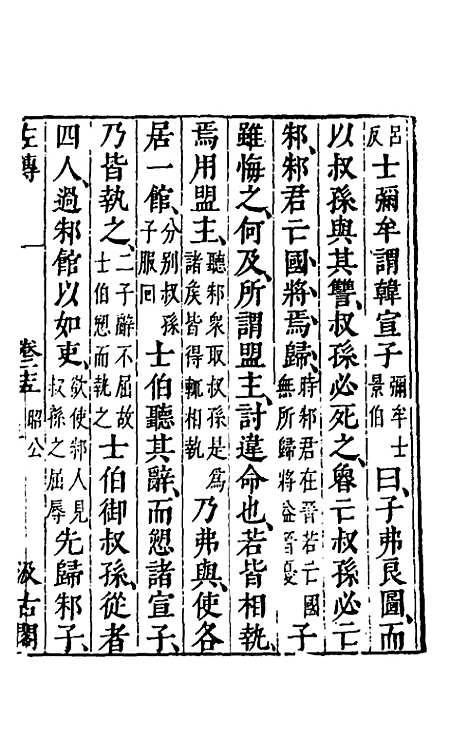 呂反士彌牟謂韓宣子彌牟士景伯曰、子弗良圖、而
以叔孫與其讐、叔孫必死之、魯亡叔孫必亡
邾、邾君亡國、將焉歸、時邾君在晉若亡國無所歸將益晉憂子
雖悔之、何及、所謂盟主、討違命也、若皆相執、
焉用盟主、聽邾衆取叔孫是爲諸矦皆得輒相執乃弗與、使各
居一館、分別叔孫子服回士伯聽其辭、而愬諸宣子、
乃皆執之、二子辭不屈故士伯愬而執之士伯御叔孫、從者
四人、過邾館以如吏、欲使邾人見叔孫之屈辱先歸邾子、
左傳 卷二五 昭公 汲古閣